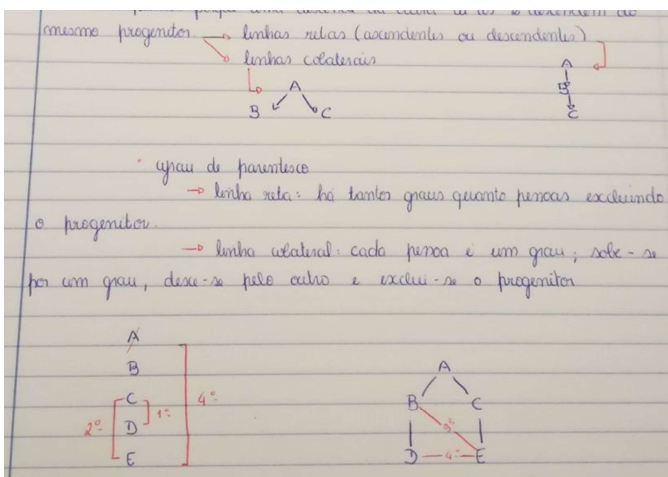 mesmo progenitor → linhas retas (ascendentes ou descendentes)
→ linhas colaterais
A
B C
A
B
C
grau de parentesco
→ linha reta: há tantos graus quanto pessoas excluindo
o progenitor.
→ linha colateral: cada pessoa é um grau; sobe-se
por um grau, desce-se pelo outro e exclui-se o progenitor
A
B
C
D
E
1º
2º
4º
A
B C
3º
D 4º E